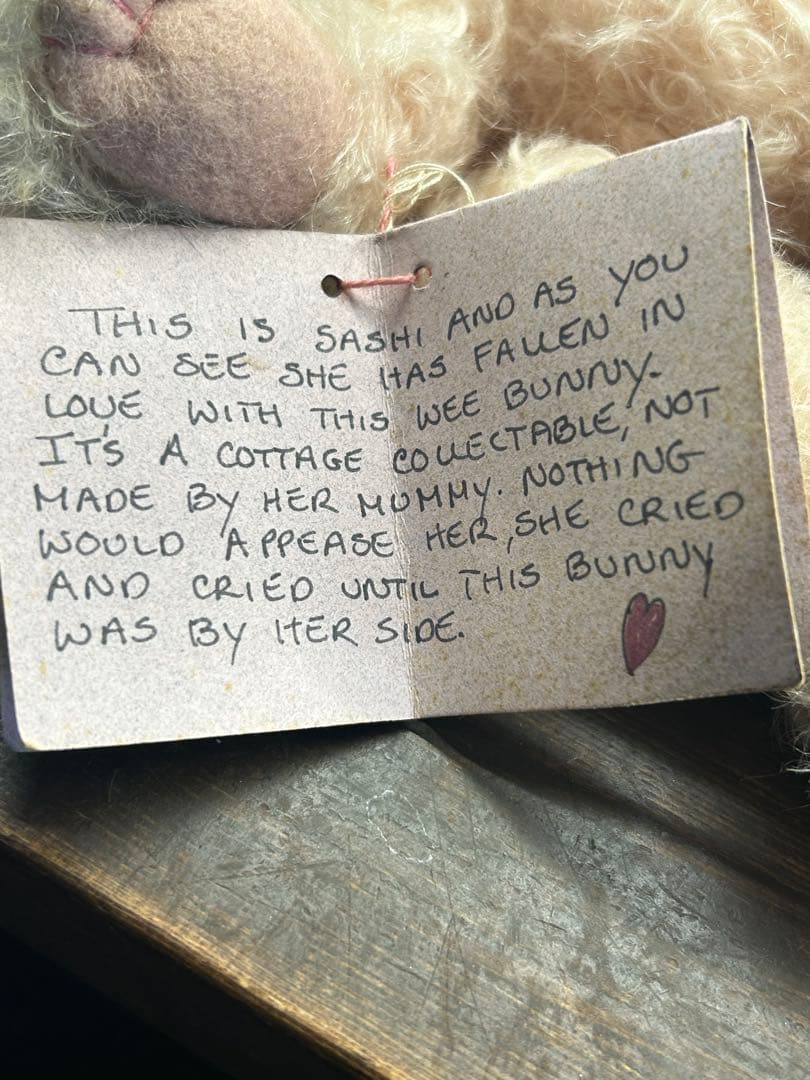 THIS IS SASHI AND AS YOU
CAN SEE SHE HAS FALLEN IN
LOVE WITH THIS WEE BUNNY.
IT'S A COTTAGE COLLECTABLE, NOT
MADE BY HER MUMMY. NOTHING
WOULD APPEASE HER, SHE CRIED
AND CRIED UNTIL THIS BUNNY
WAS BY HER SIDE.